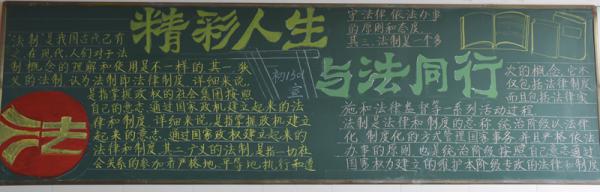 精彩人生
与法同行
初150
"法制"是我国古代已有
之,在现代,人们对于法
制概念的理解和使用是不一样的其一,狭
义的法制,认为法制即法律制度。详细来说,
是指掌握政权的社会集团按照
自己的意志、通过国家政机建立起来的法
律和制度。详细来说,是指掌握政机建立
起来的意志、通过国家政权建立起来的
法律和制度,其二,广义的法制,是指一切社
会关系的参加者严格地、平等地执行和遵
守法律,依法办事
的原则和态度。
其三,法制是一个多
次的概念,它不
仅包括法律制度
而且包括法律实
施和法律监督等一系列活动过程
法制是法律和制度的总称,统治阶级以法律
化、制度化的方式管理国家事务,并且严格依法
办事的原则,也是统治阶级按照自己意志通过
国家权力建立的维护本阶级专政的法律和制度